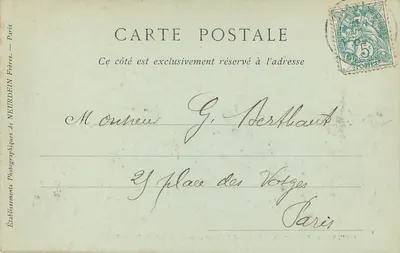 CARTE POSTALE
Ce côté est exclusivement réservé à l'adresse
Monsieur G. Berthaut
25 place des Vosges
Paris
Établissements Photographiques de NEURDEIN Frères. — Paris
5